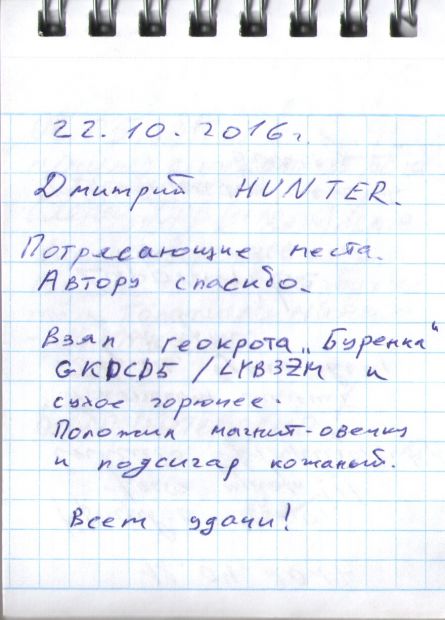 22.10.2016г.
Дмитрий HUNTER.
Потрясающие места.
Автору спасибо.
Взял геокрота „Буренка“
GKDCD5 / LYB3ZM и
сухое горючее.
Положил магнит-овечку
и подсигар кожаный.
Всем удачи!